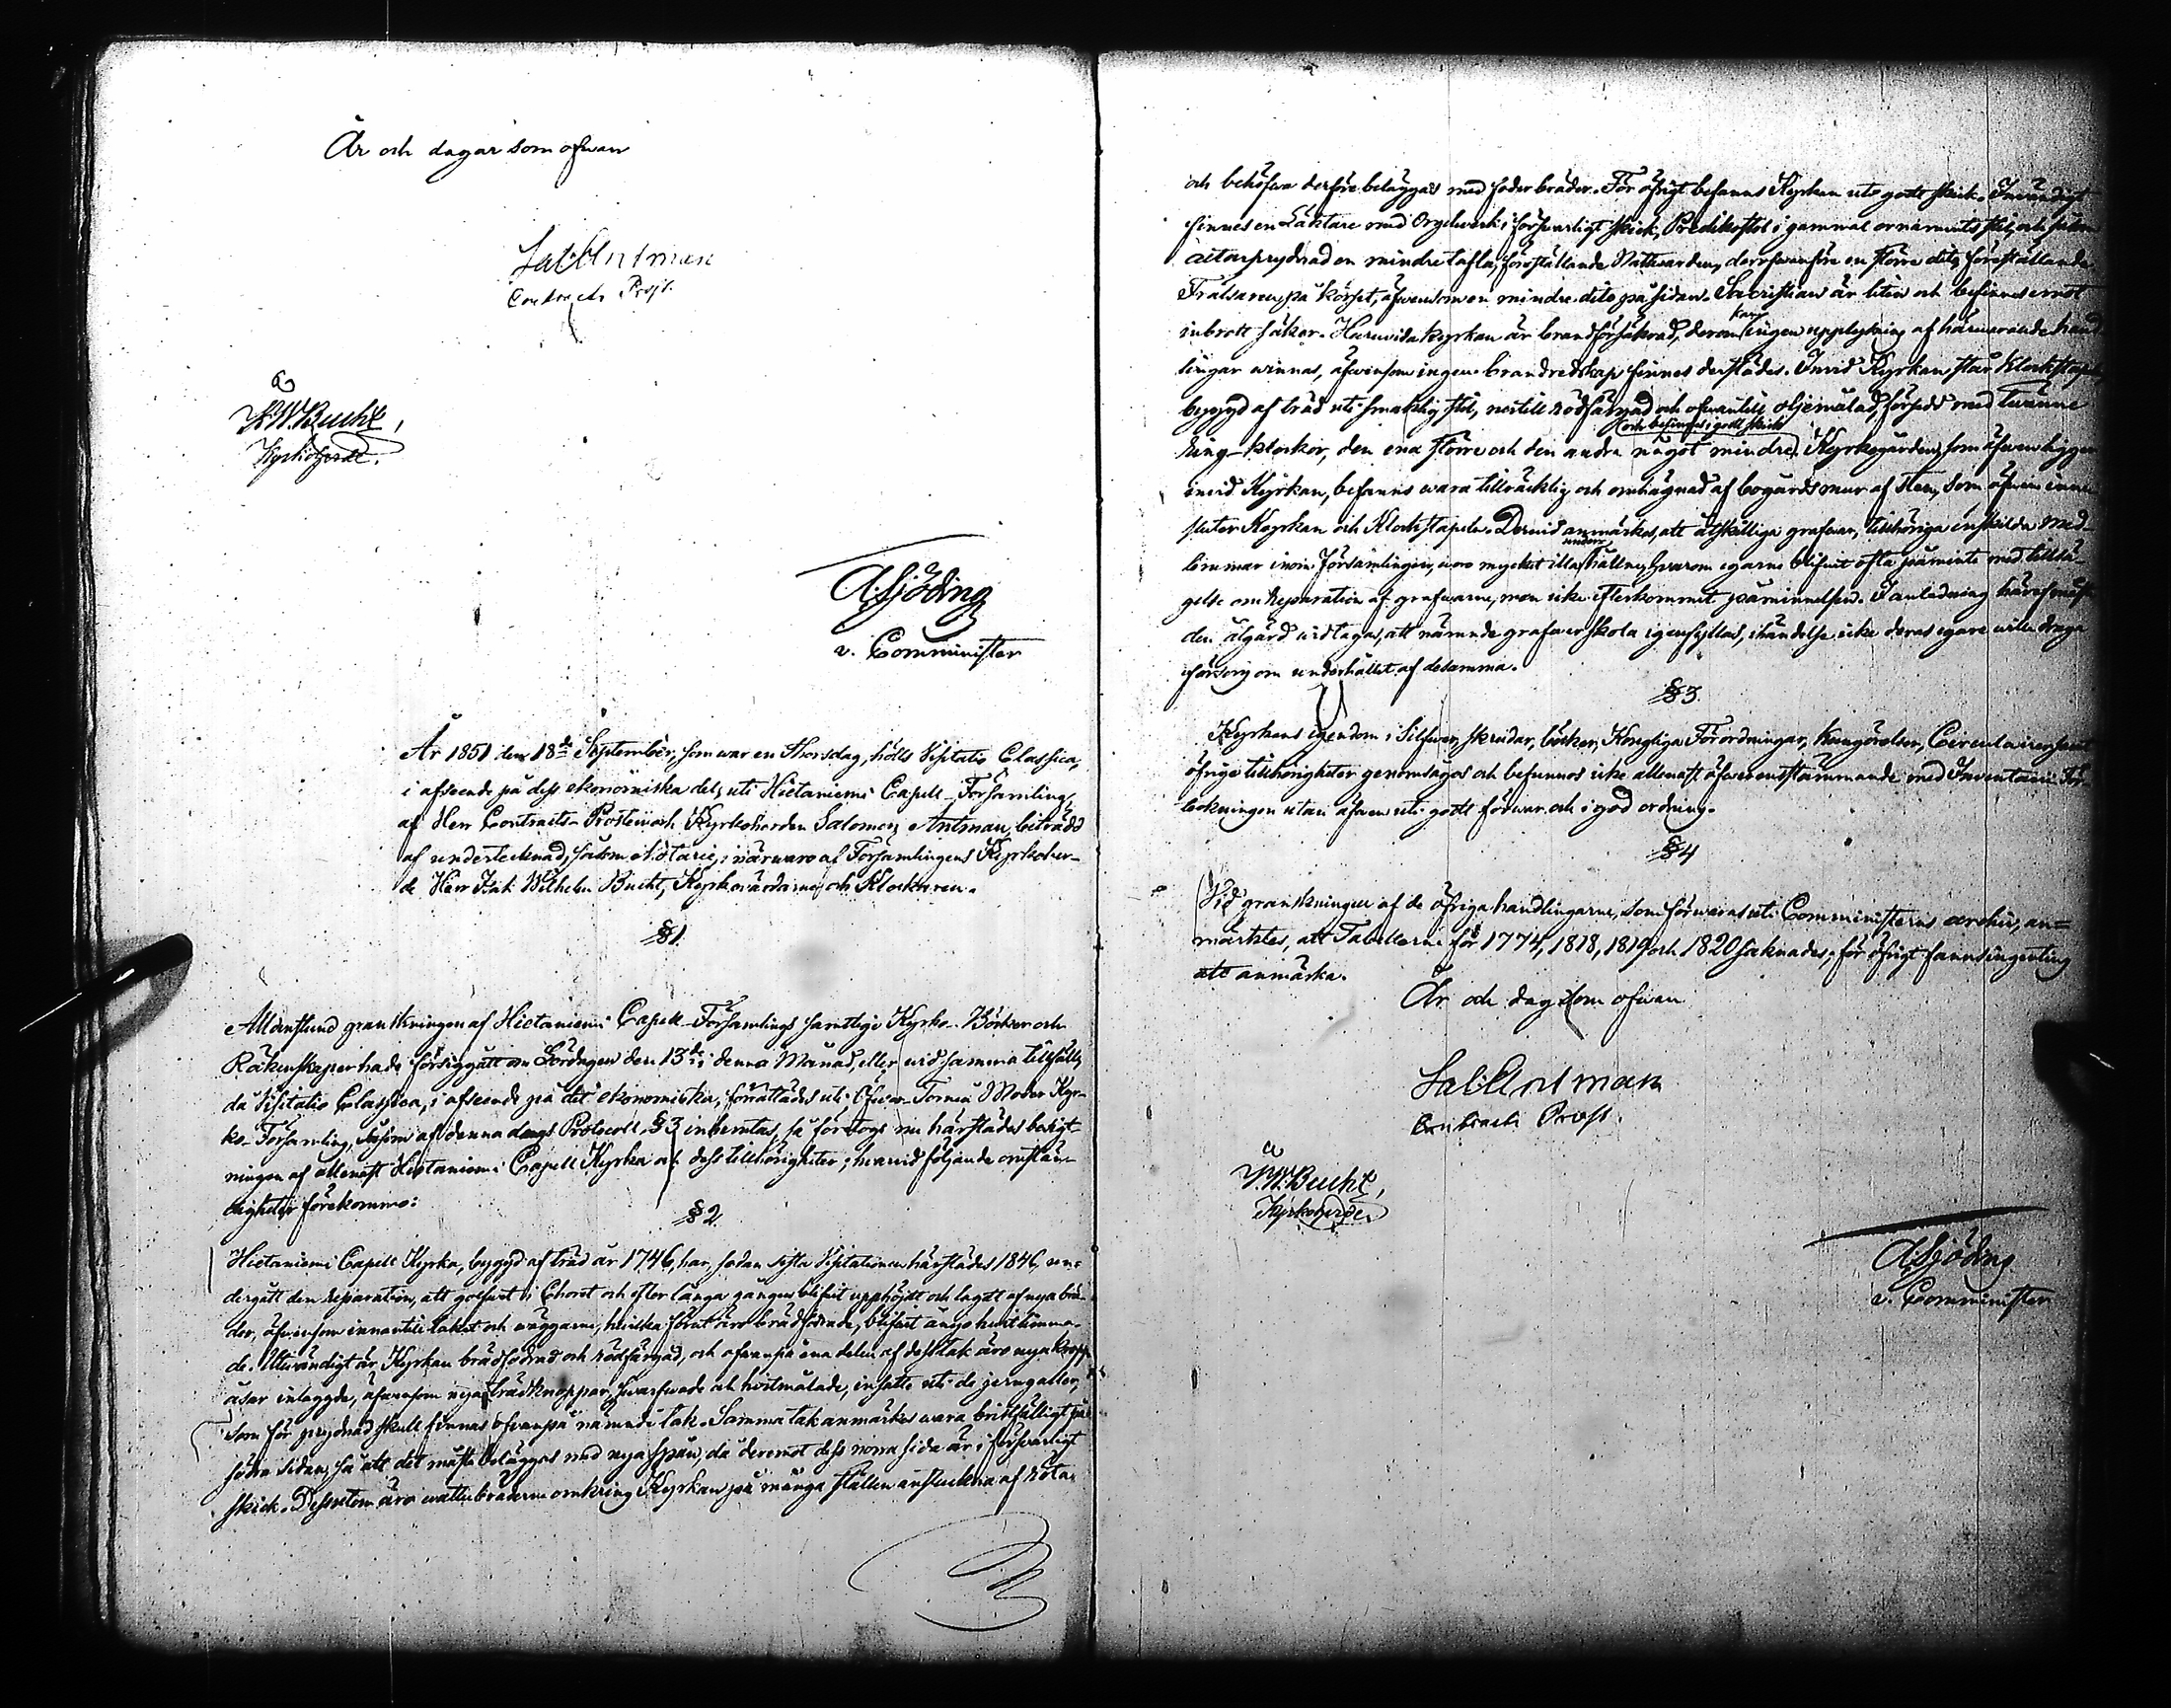 År och dagar som ofwan
Sal: Antman
Contracts Prost.
I. W. Bucht,
Kyrkoherde.
A. Sjöding
v. Comminister
År 1851 den 18de September, som war en Thorsdag, hölls Visitatio Classica,
i afseende på dess ekonomiska del, uti Hietaniemi Capell-Församling,
af Herr Contracts-Prosten och Kyrkoherden Salomon Antman, biträdd
af undertecknad, såsom Notarie, i närwaro af Församlingens Kyrkoher-
de Herr Isak Wilhelm Bucht, Kyrkowärdarne och Klockaren.
§ 1
Alldenstund granskningen af Hietaniemi Capell-Församlings samtlige Kyrko-Böcker och
Räkenskaper hade försiggått om Lördagen den 13de i denna Månad, eller wid samma tillfälle,
då Visitatio Classica, i afseende på det ekonomiska, förrättades uti Öfwer-Torneå Moder Kyr-
ko-Församling, såsom af denna dags Protocoll § 3 inhemtas, så företogs nu härstädes besigt-
ningen af allenast Hietaniemi Capell Kyrka och dess tillhörigheter; hwarwid följande omstän-
digheter förekommo:
§ 2
Hietaniemi Capell Kyrka, byggd af träd år 1746, har, sedan sista Visitationen härstädes 1846, un-
dergått den reparation, att golfwet i Choret och efter långa gången blifwit upphöjdt och lagdt af nya brä-
der, äfwensom innantill taket och wäggarne, hwilka förut äro brädfodrade, blifwit ånyo hwitlimma-
de. Utwändigt är Kyrkan brädfodrad och rödfärgad, och ofwanpå ena delen af dess tak äro nya kropp-
åsar inlaggde, äfwensom nya trädknoppar, swarfwade och hwitmålade, insatte uti de jerngaller,
som för prydnad skull finnas ofwanpå nämnde tak. Samma tak anmärkes wara bristfälligt på
södra sidan, så att det måste beläggas med nya spån, då deremot dess norra sida är i förswarligt
skick. Dessutom äro wattubräderne omkring Kyrkan på många ställen anstuckna af röta,
och behöfwa derföre beläggas med foderbräder. För öfrigt befanns Kyrkan uti godt skick. Inwändigt
finnes en Läktare med Orgelwerk i förswarligt skick, Predikstol i gammal ornamentsstil, och såsom
altarprydnad en mindre tafla, föreställande Nattwarden, derofwanföre en större dito, föreställande
Frälsaren på korset, äfwensom en mindre dito på sidan. Sacristian är liten och befinnes emot
inbrott säker. Huruwida kyrkan är brandförsäkrad, derom kan ingen upplysning af härwarande hand-
lingar winnas, äfwensom ingen brandredskap finnes derstädes. Inwid Kyrkan, står Klockstapeln
byggd af träd uti smaklig stil, nertill rödfärgad och ofwantill oljemålad, försedd med twänne
och befinnes i godt skick
ring-klockor, den ena större och den andra något mindre. Kyrkogården, som äfwen ligger
inwid Kyrkan, befanns wara tillräcklig och omhägnad af bogårdsmur af sten, som äfwen inne-
sluter Kyrkan och Klockstapeln. Derwid anmärkes, att åtskilliga grafwar, tillhöriga enskilda med-
lemmar inom Församlingen, äro mycket illa underhållne, hwarom egarne blifwit ofta påminte med tillsä-
gelse om reparation af grafwarne, men icke efterkommit påminnelsen. I anledning häraf måste
den åtgärd widtagas, att nämnde grafwar skola igenfyllas, ihändelse icke deras egare wilja draga
försorg om underhållet af desamma.
§ 3.
Kyrkans egendom i Silfwer, skrudar, böcker, Kongliga Förordningar, Kungörelser, Circulairer, samt
öfrige tillhörigheter genomsågos och befunnos icke allenast öfwerensstämmande med Inventarii För-
teckningen utan äfwen uti godt förwar och i god ordning.
§ 4
Wid granskningen af de öfriga handlingarne, som förwaras uti Comministerns archiv, an-
märktes, att Tabellerne för 1774, 1818, 1819 och 1820 saknades; för öfrigt fanns ingenting
att anmärka.
År och dag som ofwan
Sal: Antman
Contracts Prost.
I. W. Bucht,
Kyrkoherde
A. Sjöding
v. Comminister